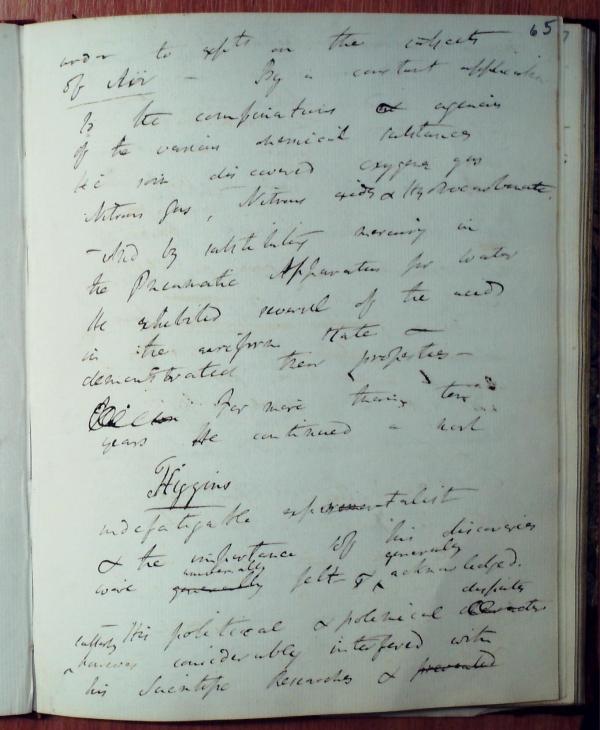 65
order to expts on the subjects
of Air - By a constant application
to the combinations & agencies
of the various chemical substances
He soon discovered oxygene gas
Nitrous gas, Nitrous oxide & Hydrocarbonate.
- And by substituting mercury in
the Pneumatic Apparatus for water
He exhibited several of the acids
in the aeriform state &
demonstrated their properties -
For more than ten
years He continued a most
Higgins
indefatigable experimentalist
& the importance of his discoveries
were universally generally felt & generally acknowledged.
His political & polemical disputes
however considerably interfered with
his Scientific Researches & prevented